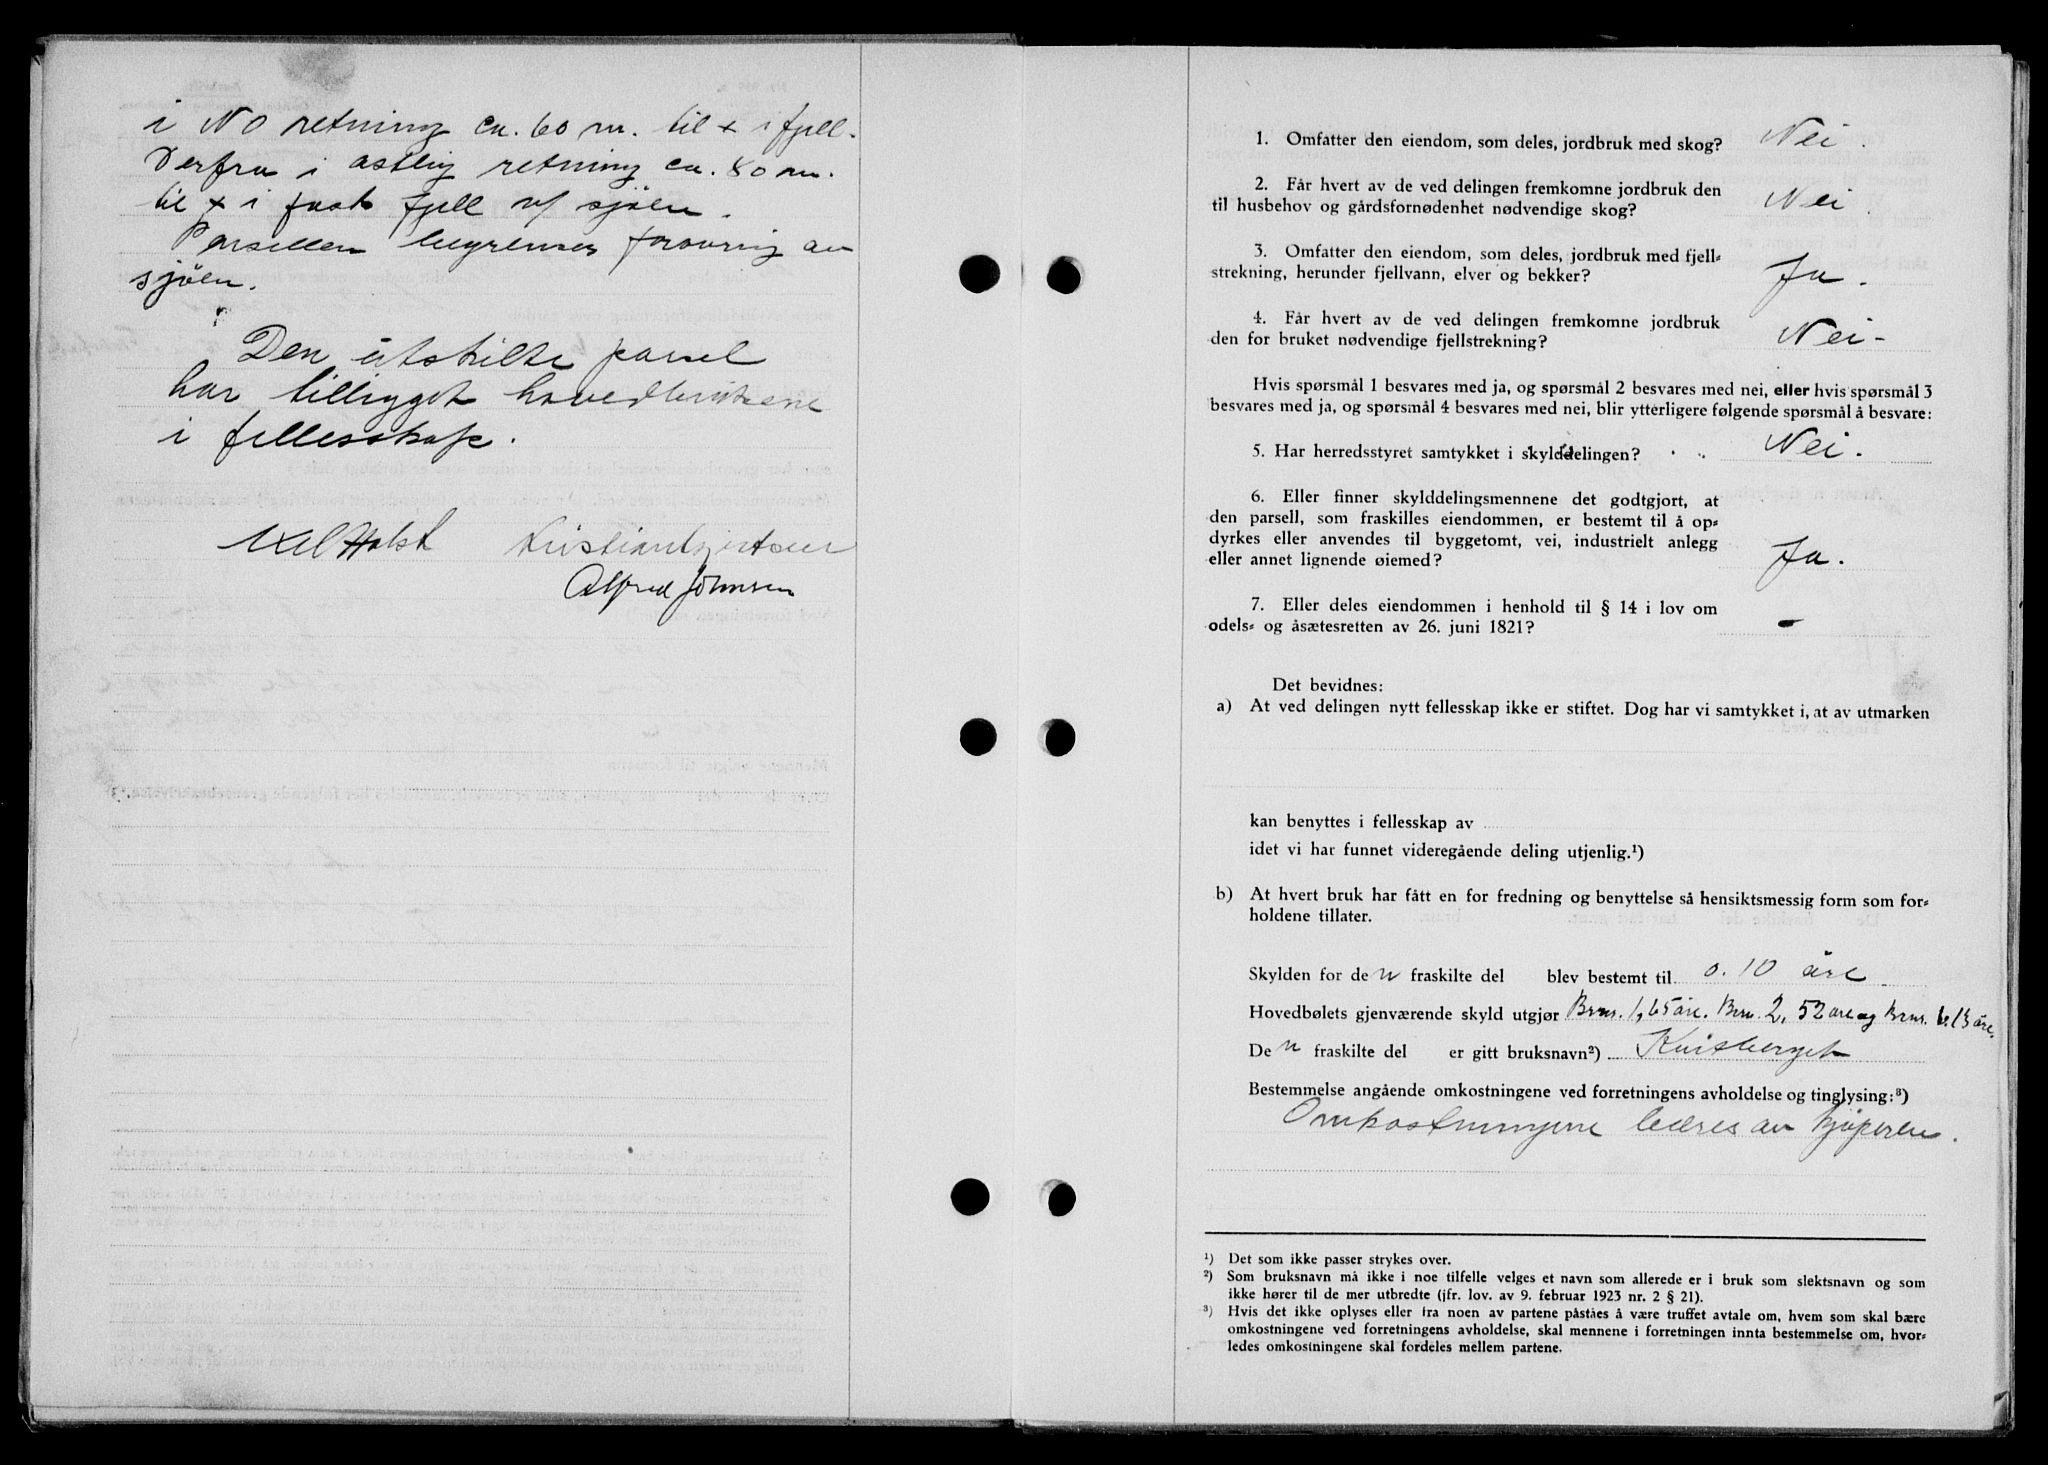 i NO retning ca. 60 m. til x i fjell.
Derfra i østlig retning ca. 80 m.
til x i fast fjell v/ sjöen.
Parsellen begrenses forøvrig av
sjöen.
Den utskilte parsel
har tilligget hovedbrukene
i fellesskap.
Axel Holst Kristian Gjertsen
Alfred Johnsen
1. Omfatter den eiendom, som deles, jordbruk med skog? Nei.
2. Får hvert av de ved delingen fremkomne jordbruk den
til husbehov og gårdsfornødenhet nødvendige skog? Nei.
3. Omfatter den eiendom, som deles, jordbruk med fjell=
strekning, herunder fjellvann, elver og bekker? Ja.
4. Får hvert av de ved delingen fremkomne jordbruk
den for bruket nødvendige fjellstrekning? Nei-
Hvis spørsmål 1 besvares med ja, og spørsmål 2 besvares med nei, eller hvis spørsmål 3
besvares med ja, og spørsmål 4 besvares med nei, blir ytterligere følgende spørsmål å besvare:
5. Har herredsstyret samtykket i skylddelingen? Nei.
6. Eller finner skylddelingsmennene det godtgjort, at
den parsell, som fraskilles eiendommen, er bestemt til å op=
dyrkes eller anvendes til byggetomt, vei, industrielt anlegg
eller annet lignende øiemed? Ja.
7. Eller deles eiendommen i henhold til § 14 i lov om
odels= og åsætesretten av 26. juni 1821? -
Det bevidnes:
a) At ved delingen nytt fellesskap ikke er stiftet. Dog har vi samtykket i, at av utmarken
kan benyttes i fellesskap av
idet vi har funnet videregående deling utjenlig.¹)
b) At hvert bruk har fått en for fredning og benyttelse så hensiktsmessig form som for=
holdene tillater.
Skylden for den fraskilte del blev bestemt til 0.10 öre
Hovedbølets gjenværende skyld utgjør Brnr. 1, 65 øre. Brn. 2, 52 øre og Brnr. 6. 13 øre.
Den fraskilte del er gitt bruksnavn²)
Bestemmelse angående omkostningene ved forretningens avholdelse og tinglysing:³)
Omkostningene bæres av kjöperen.
¹) Det som ikke passer strykes over.
²) Som bruksnavn må ikke i noe tilfelle velges et navn som allerede er i bruk som slektsnavn og som
ikke hører til de mer utbredte (jfr. lov. av 9. februar 1923 nr. 2 § 21).
³) Hvis det ikke oplyses eller fra noen av partene påståes å være truffet avtale om, hvem som skal bære
omkostningene ved forretningens avholdelse, skal mennene i forretningen innta bestemmelse om, hvor=
ledes omkostningene skal fordeles mellem partene.